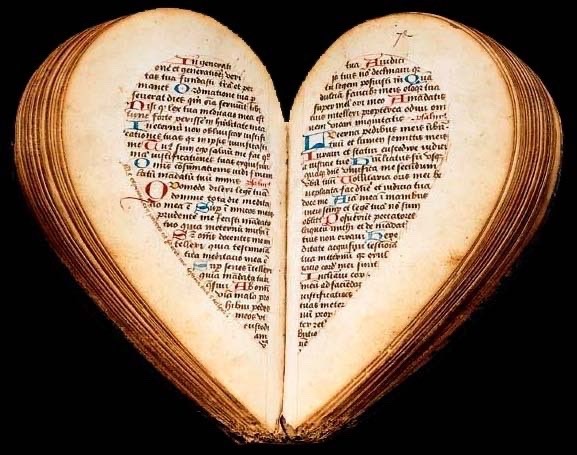 In generati
one et generatione veri
tas tua fundasti terra et per
manet Ordinatione tua p
severat dies qm oia serviut tibi
Nisi q lex tua meditatio mea est
tunc forte perissem in humilitate mea
In eternu non obliviscar iustifi
cationes tuas quia in ipsis vivificasti
me Tuus sum ego salvu me fac qm
iustificationes tuas exquisivi
Omis consumatiois vidi finem
latu madatu tuu nimis
Quomodo dilexi lege tua
domine tota die medita
tio mea e Sup inimicos meos
prudente me fecisti madato
tuo quia meternu michi e
Sup oms docentes me in
tellexi quia testimonia
tua meditatio mea e
Sup senes itellexi
quia madata tua
qsivi Ab omi
via mala pro
hibui pedes
meos vt
custodi
am
tua Iudici
ia tuis no declinavi qr
tu legem posuisti m Qua
dulcia faucibi meis eloqa tua
super mel ori meo A madatis
tuis intellexi propterea odivi omne
viam iniquitatis
Lucerna pedibus meis verbu
tuu et lumen semitis meis
Iuravi et statui custodire iudicia
iusticie tue Humiliatus su vsq
quaq dne vivifica me secundum
verbu tuu Voluntaria oris mei be
neplacita fac dne et iudicia tua
doce me Aia mea i manibus
meis semp et lege tua no sum
oblitus Posuerunt peccatores
laqueu michi et de madatis
tuis non erravi Here
ditate acquisivi testioia
tua meternu qr exul
tatio cord mei sunt
Inclinavi cor
meu ad faciedas
iustificationes
tuas meter
nu prop
ter ret
butio
ne